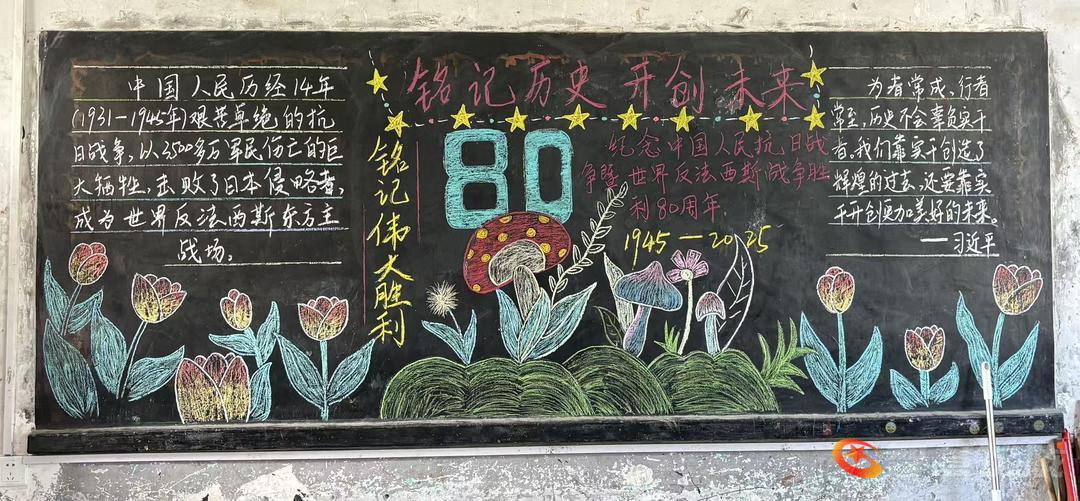 中国人民历经14年
(1931-1945年)艰苦卓绝的抗
日战争,以3500多万军民伤亡的巨
大牺牲,击败了日本侵略者,
成为世界反法西斯东方主
战场。
铭记历史 开创未来
铭记伟大胜利
80
纪念中国人民抗日战
争暨世界反法西斯战争胜
利80周年.
1945-2025
为者常成、行者
常至,历史不会辜负实干
者。我们靠实干创造了
辉煌的过去,还要靠实
干开创更加美好的未来。
——习近平